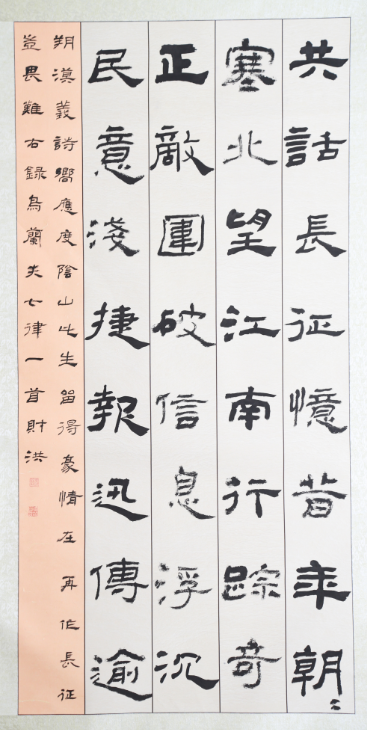 共話長征憶昔年朝
塞北望江南行踪奇
正敵圍破信息浮沉
民意淺捷報迅傳逾
朔漠義詩嚮應度陰山此生留得豪情在再作長征
豈畏難右録烏蘭夫七律一首財洪